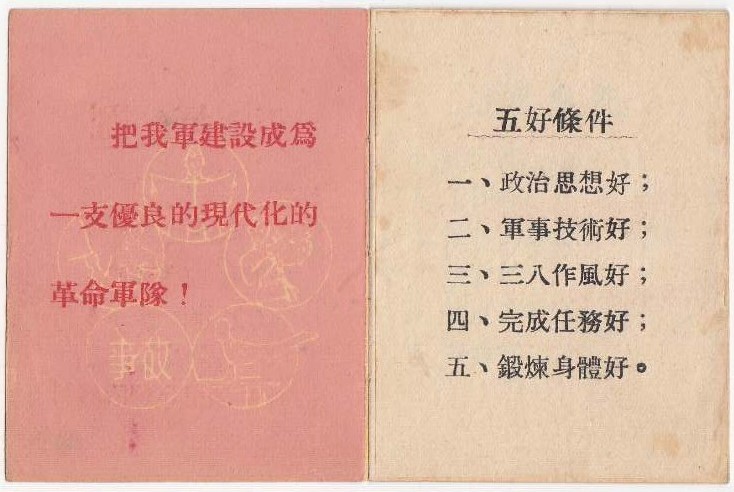 把我軍建設成爲
一支優良的現代化的
革命軍隊！
五好條件
一、政治思想好；
二、軍事技術好；
三、三八作風好；
四、完成任務好；
五、鍛煉身體好。